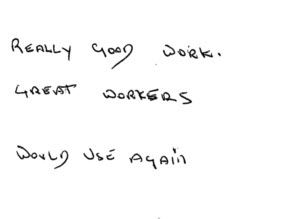 REALLY GOOD WORK.
GREAT WORKERS
WOULD USE AGAIN